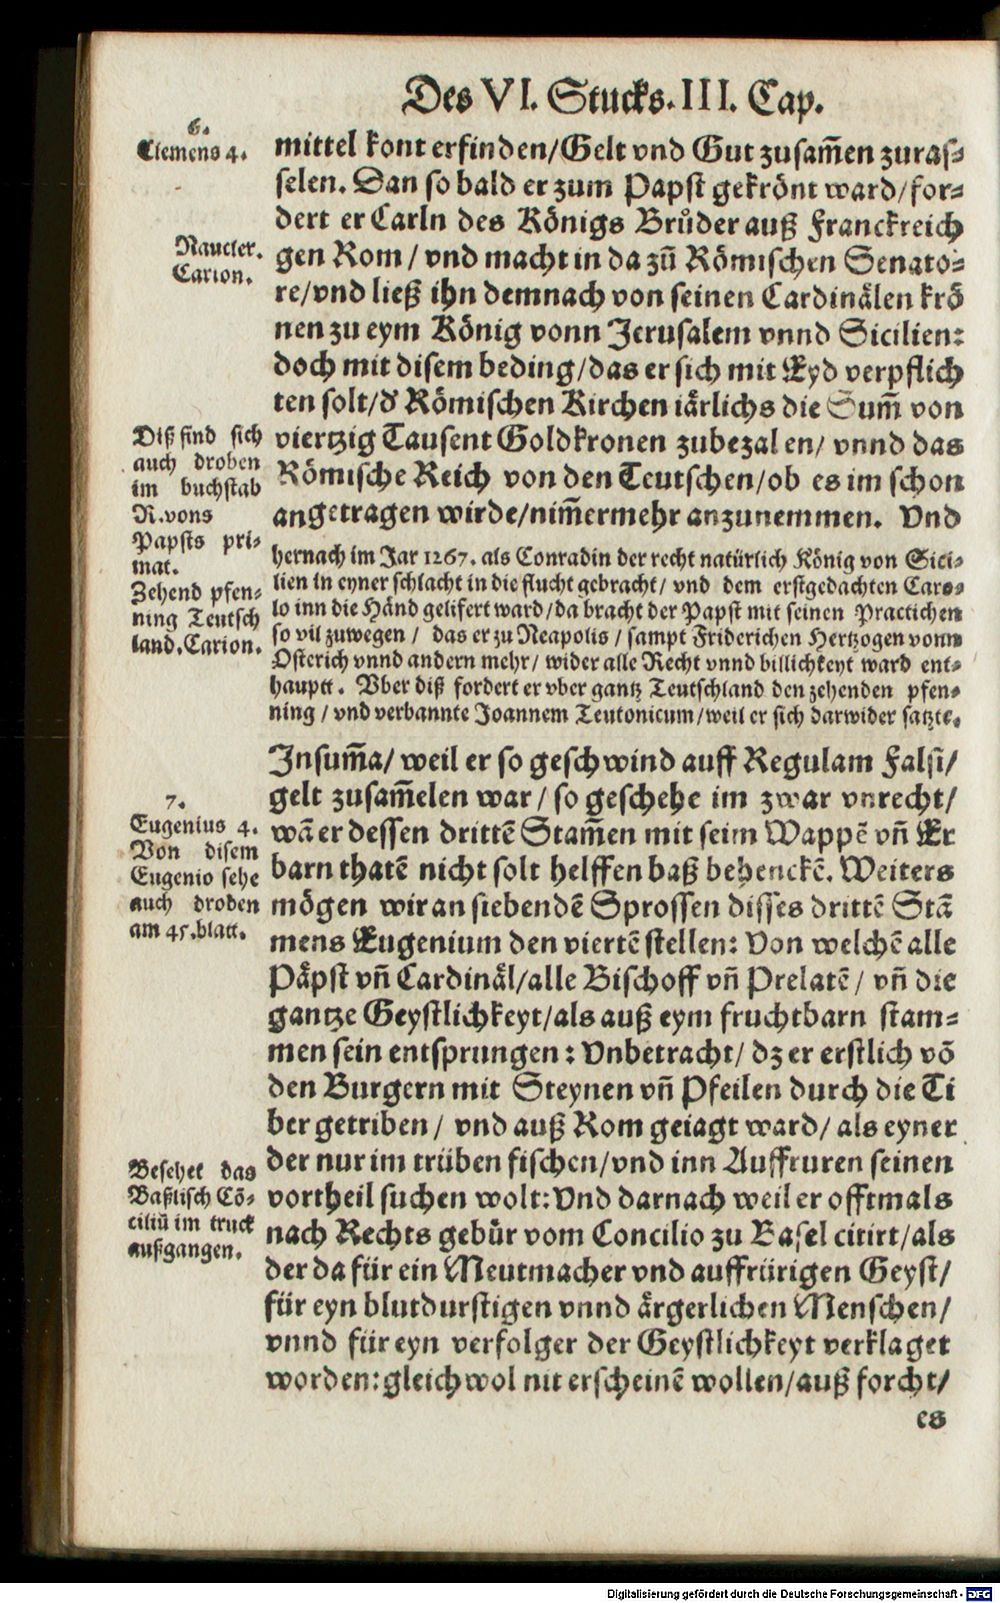 Des VI. Stucks. III. Cap.
6.
Clemens 4.
mittel kont erfinden/Gelt vnd Gut zusam̃en zuras⸗
selen. Dan so bald er zum Papst gekrönt ward/for⸗
dert er Carln des Königs Brůder auß Franckreich
Naucler.
Carion.
gen Rom/ vnd macht in da zũ Römischen Senato⸗
re/vnd ließ ihn demnach von seinen Cardinälen krö
nen zu eym König vonn Jerusalem vnnd Sicilien:
doch mit disem beding/das er sich mit Eyd verpflich
ten solt/d' Römischen Kirchen iärlichs die Sum̃ von
Diß sind sich
auch droben
im buchstab
R.vons
Papsts pri⸗
mat.
Zehend pfen⸗
ning Teutsch
land.Carion.
viertzig Tausent Goldkronen zubezalen/ vnnd das
Römische Reich von den Teutschen/ob es im schon
angetragen wirde/nim̃ermehr anzunemmen. Vnd
hernach im Jar 1267. als Conradin der recht natürlich König von Sici⸗
lien in eyner schlacht in die flucht gebracht/ vnd dem erstgedachten Caro⸗
lo inn die Händ gelifert ward/da bracht der Papst mit seinen Practichen
so vil zuwegen/ das er zu Neapolis/ sampt Friderichen Hertzogen vonn
Osterich vnnd andern mehr/ wider alle Recht vnnd billichkeyt ward ent⸗
hauptt. Vber diß fordert er vber gantz Teutschland den zehenden pfen⸗
ning/ vnd verbannte Joannem Teutonicum/weil er sich darwider satzte.
Insum̃a/ weil er so geschwind auff Regulam Falsi/
7.
Eugenius 4.
Von disem
Eugenio sehe
auch droben
am 45.blatt.
gelt zusam̃elen war/ so geschehe im zwar vnrecht/
wã er dessen drittẽ Stam̃en mit seim Wappẽ vñ Er
barn thatẽ nicht solt helffen baß behenckẽ. Weiters
mögen wir an siebendẽ Sprossen disses drittẽ Stã
mens Eugenium den viertẽ stellen: Von welchẽ alle
Päpst vñ Cardinäl/alle Bischoff vñ Prelatẽ/ vñ die
gantze Geystlichkeyt/als auß eym fruchtbarn stam⸗
men sein entsprungen: Vnbetracht/ dz er erstlich võ
den Burgern mit Steynen vñ Pfeilen durch die Ti
ber getriben/ vnd auß Rom geiagt ward/ als eyner
Besehet das
Baßlisch Cõ⸗
ciliũ im truck
außgangen.
der nur im trüben fischen/vnd inn Auffruren seinen
vortheil suchen wolt: Vnd darnach weil er offtmals
nach Rechts gebür vom Concilio zu Basel citirt/als
der da für ein Meutmacher vnd auffrürigen Geyst/
für eyn blutdurstigen vnnd ärgerlichen Menschen/
vnnd für eyn verfolger der Geystlichkeyt verklaget
worden: gleichwol nit erscheinẽ wollen/auß forcht/
es
Digitalisierung gefördert durch die Deutsche Forschungsgemeinschaft - DFG